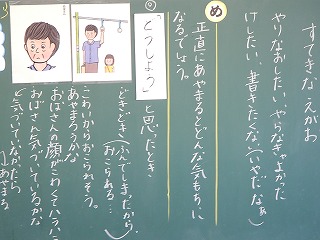 すてきなえがお
やりなおしたい、やらなきゃよかった
けしたい、書きたくない(いやだなぁ)
め
正直にあやまるとどんな気もちに
なるでしょう。
◎
「どうしよう」
と思ったとき
どきどき(ふんでしまったから)
おこられる…
こわいからおこられそう。
あやまろうかな
おばさんの顔がこわくてハラハラ
おばさん気づいているかな
気づいていなかったら
あやまる